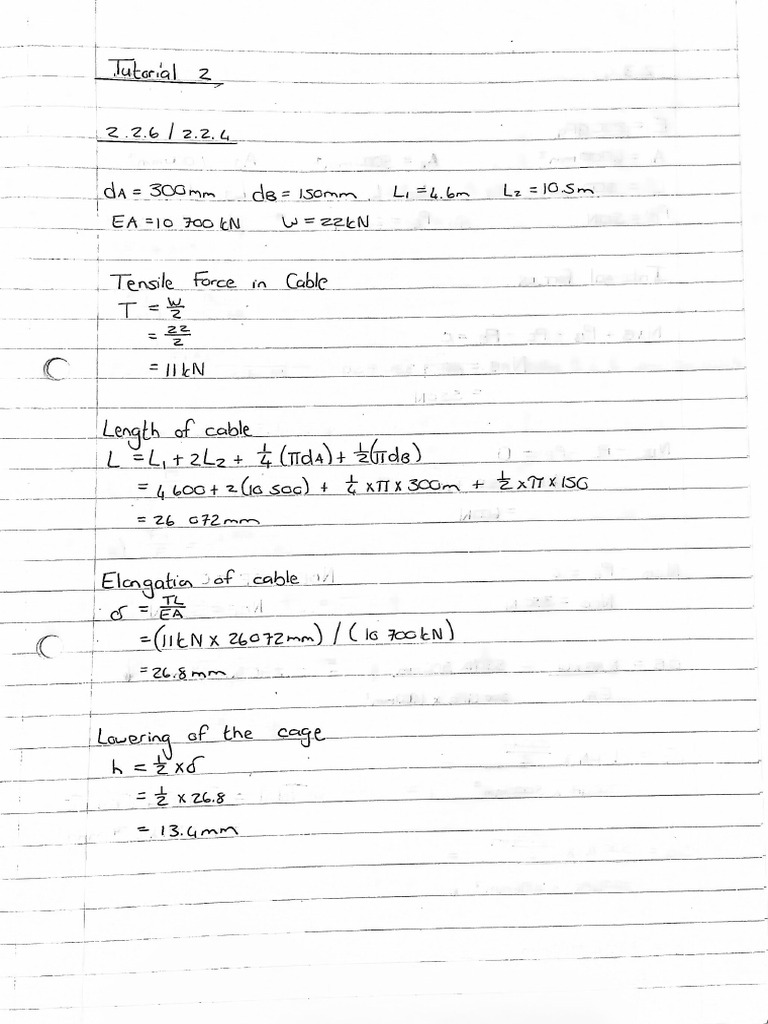 Tutorial 2
2.2.6 / 2.2.4
dA = 300mm dB = 150mm L1 = 4.6m L2 = 10.5m
EA = 10 700 kN W = 22kN
Tensile Force in Cable
T = W/2
= 22/2
= 11kN
Length of cable
L = L1 + 2L2 + 1/4 (πdA) + 1/2 (πdB)
= 4 600 + 2(10 500) + 1/4 × π × 300m + 1/2 × π × 150
= 26 072mm
Elongation of cable
δ = TL/EA
= (11kN × 26072mm) / (10 700kN)
= 26.8mm
Lowering of the cage
h = 1/2 × δ
= 1/2 × 26.8
= 13.4mm